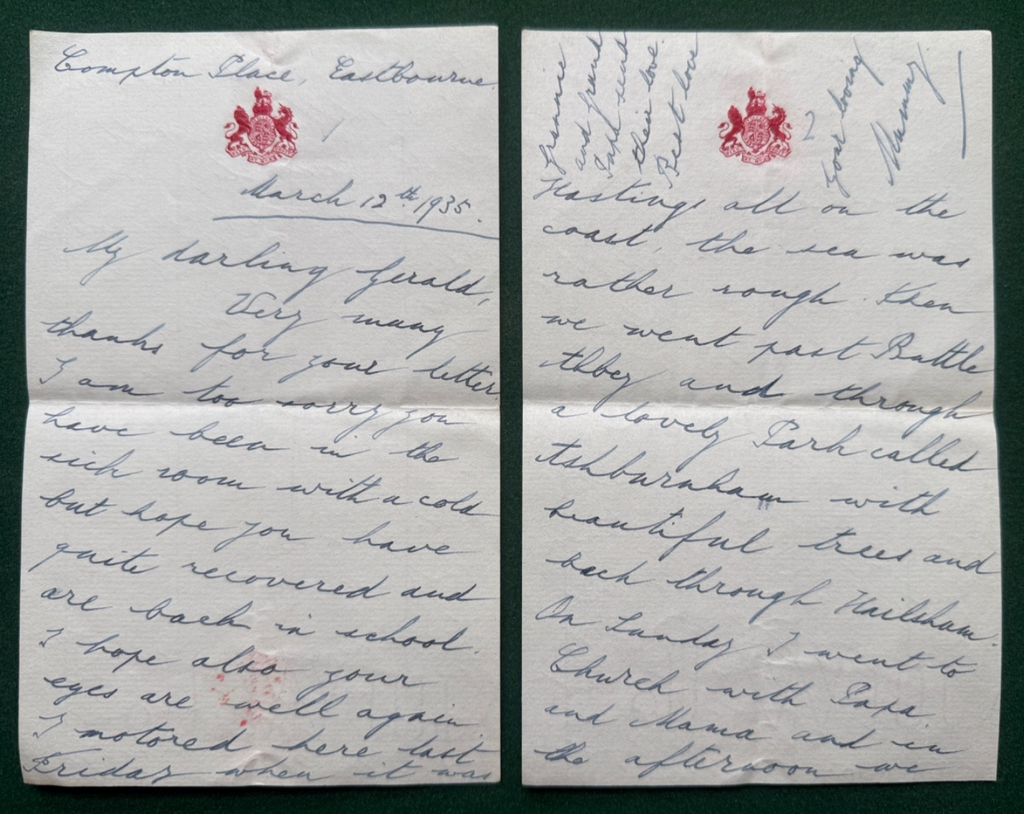 Compton Place, Eastbourne.
1
March 12th 1935.
My darling Gerald,
Very many
thanks for your letter.
I am too sorry you
have been in the
sick room with a cold
but hope you have
quite recovered and
are back in school.
I hope also your
eyes are well again.
I motored here last
Friday when it was
Grannie
and Grand
Papa send
their love.
Best love
2
your loving
Mummy
Hastings all on the
coast, the sea was
rather rough. Then
we went past Battle
Abbey and through
a lovely Park called
Ashburnham with
beautiful trees and
back through Hailsham.
On Sunday I went to
Church with Papa
and Mama and in
the afternoon we